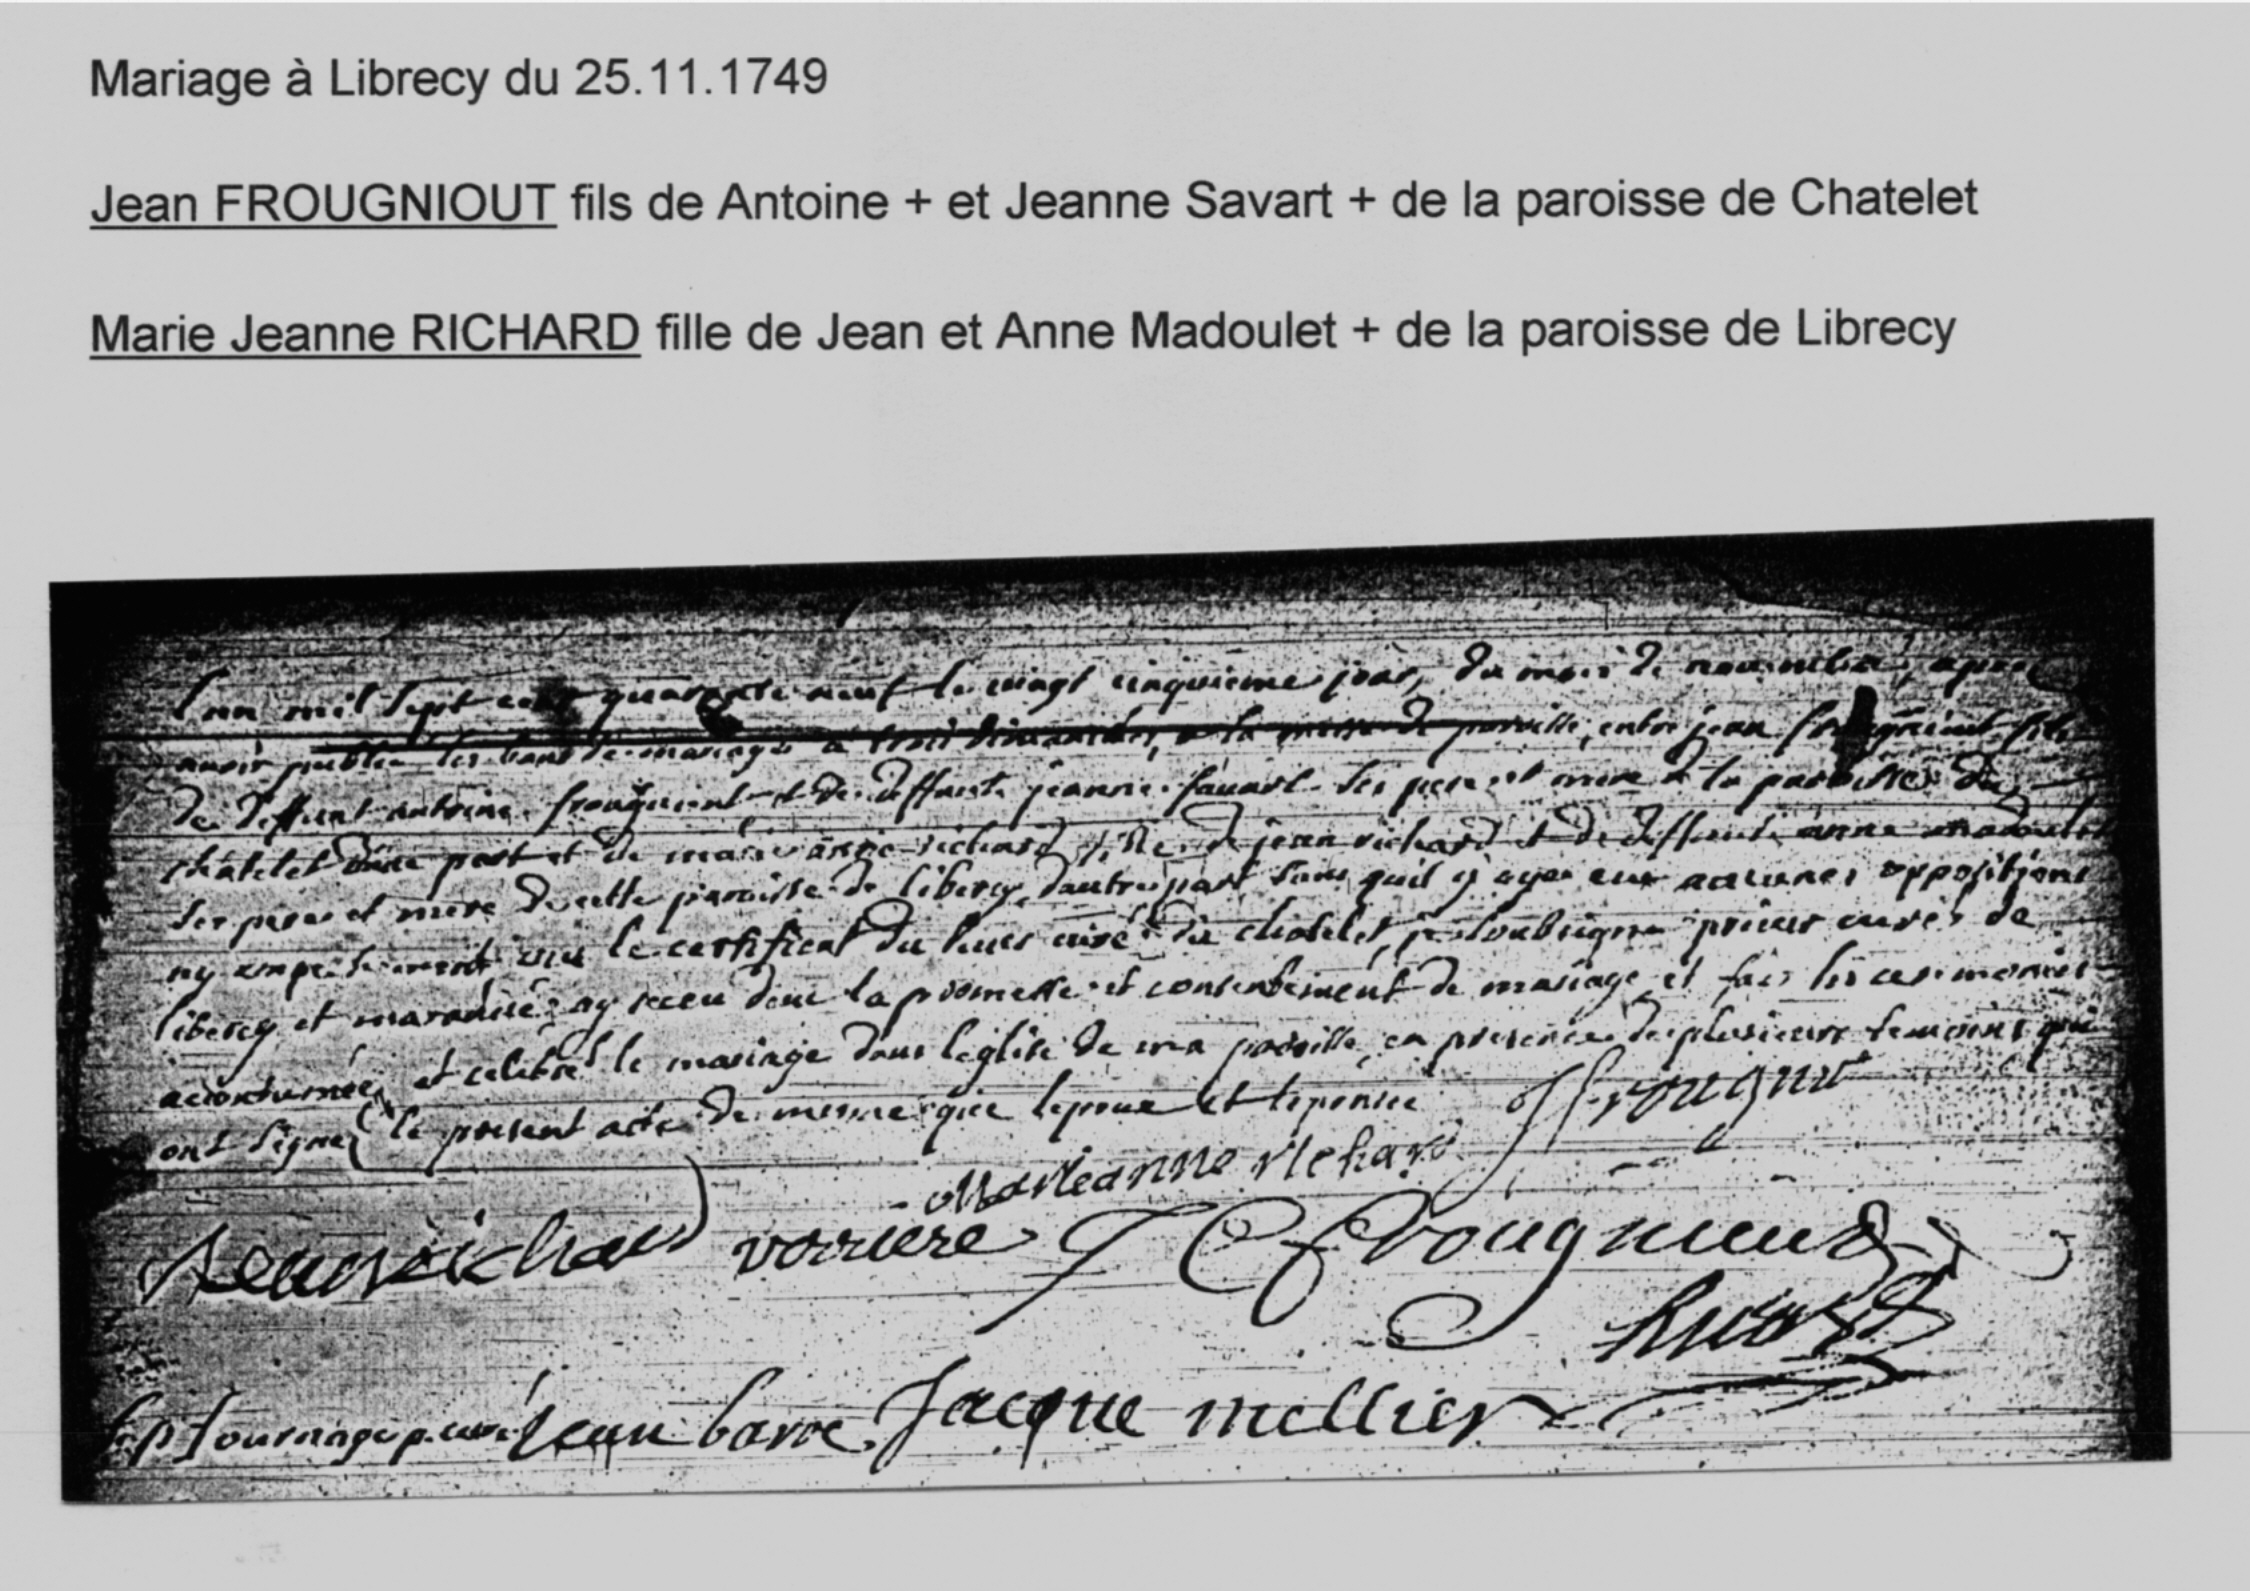 Mariage à Librecy du 25.11.1749
Jean FROUGNIOUT fils de Antoine + et Jeanne Savart + de la paroisse de Chatelet
Marie Jeanne RICHARD fille de Jean et Anne Madoulet + de la paroisse de Librecy
l'an mil sept cent quarante neuf le vingt cinquieme jour, du mois de novembre, apres
avoir publié les bans de mariage a trois dimanches, a la messe de paroisse, entre jean fils
de deffunt antoine frougniout et de deffunte jeanne savart ses pere et mere de la paroisse du
chatelet d'une part et de marie anne richard fille de jean richard et de deffunte anne madoulet
ses pere et mere de cette paroisse de libercy, d'autre part sans quil y aye eue aucunes oppositions
ny empechement vue le certificat du sieur curé du chatelet, je soubsigné prieur curé de
libercy et ay receu donc la promesse et consentement de mariage et fais les ceremonies
accoutumées et celebré le mariage dans l'eglise de ma paroisse, en presence de plusieurs temoins qui
ont signez le present acte de mesme que lepoux et lepouse
Marieanne richard
jean richard vorriere J C frougnieud
jean barre Jacque mellier